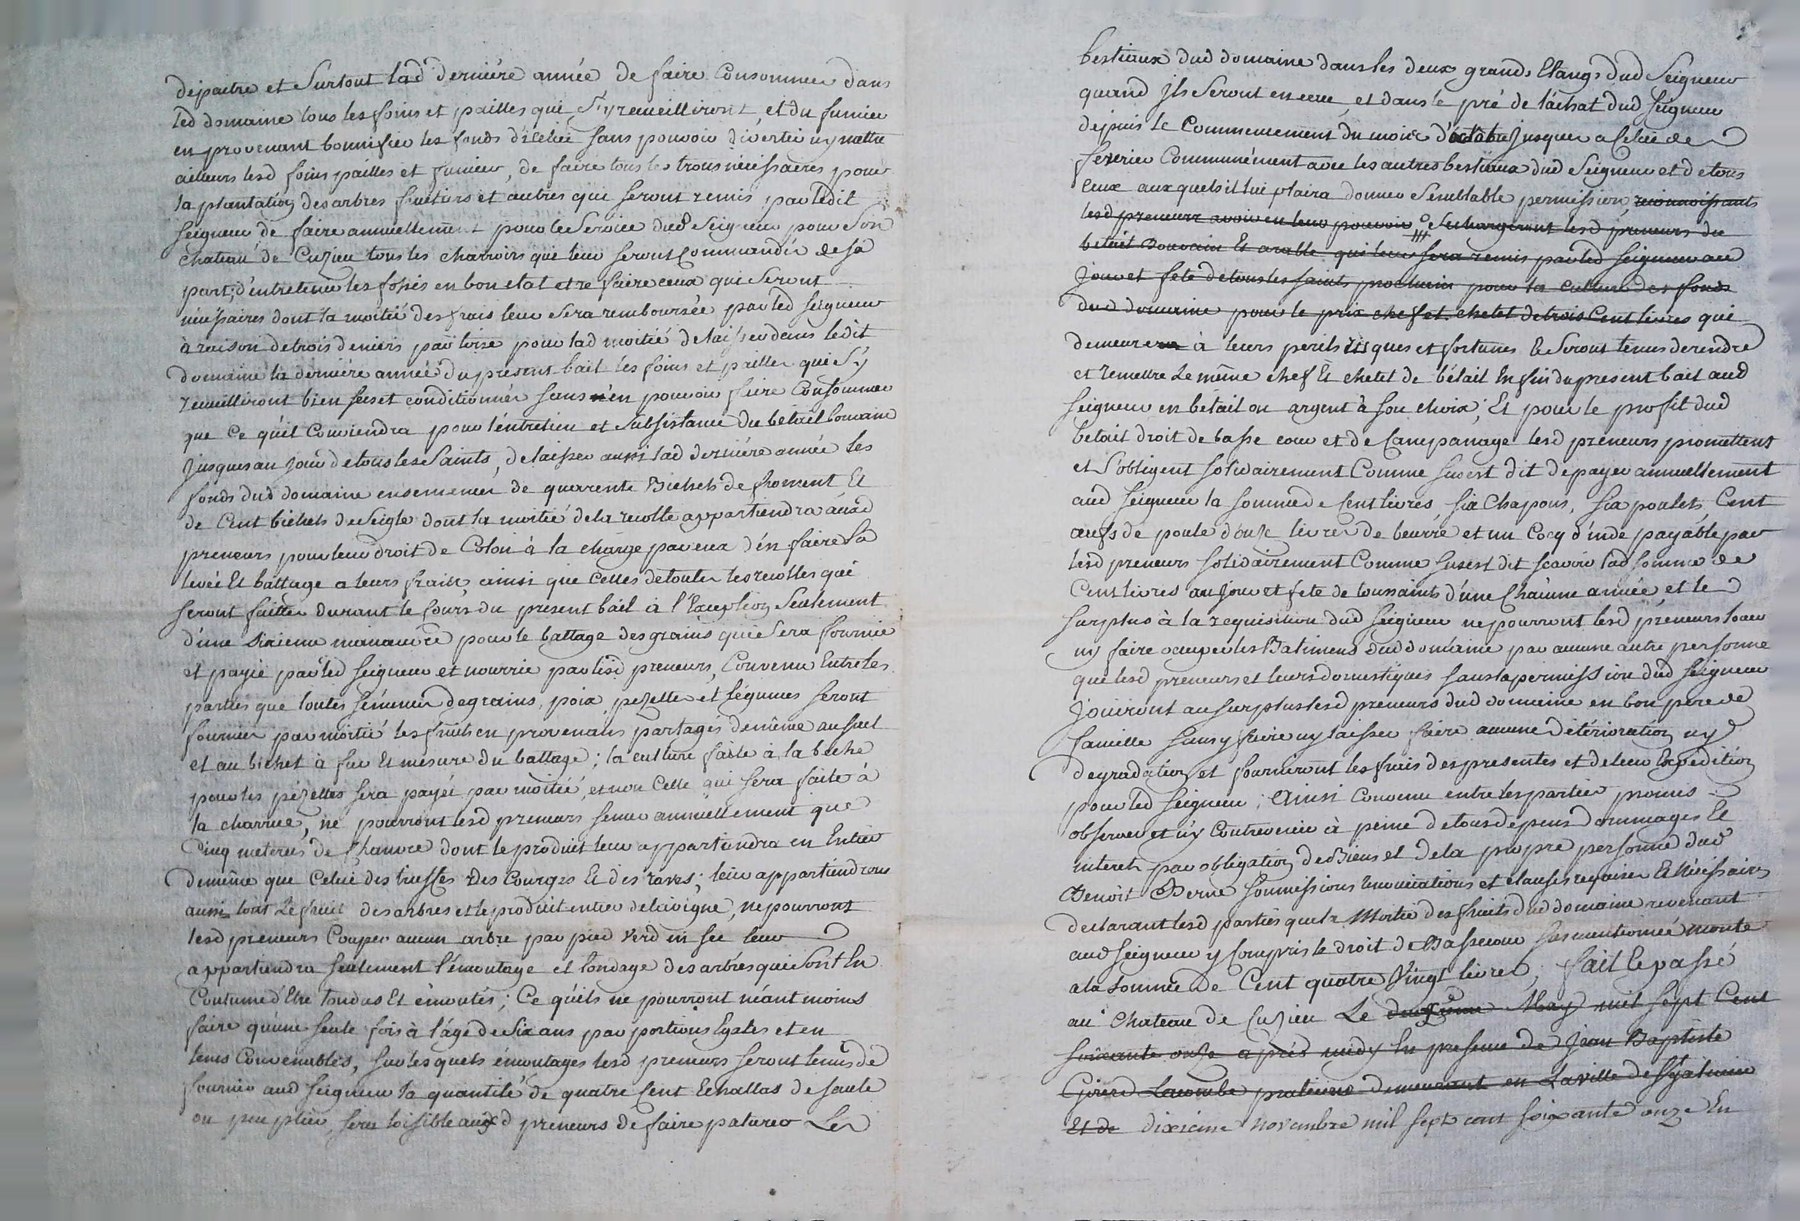 depaitre et Surtout lad derniére année de faire Consommer dans
led domaine tous les foins et pailles qui S'y recueilliront, et du fumier
en provenant bonnifier les fonds d'icelui sans pouvoir divertir ny mettre
ailleurs lesd foins pailles et fumier, de faire tous les trous nécessaires pour
la plantation des arbres fruitiers et autres qui seront remis par ledit
Seigneur de faire annuellement pour le Service dud Seigneur pour Son
Chateau de Cuzieu tous les charrois qui leur seront Commandés de sa
part; d'entretenir les fossés en bon etat et re faire ceux qui Seront
nécessaires dont la moitié des frais leur Sera remboursée par led Seigneur
à raison de trois deniers par toise pour lad moitié de laisser dans ledit
domaine la derniére année du présent bail les foins et pailles qui S'y
recueilliront bien secs et conditionnés sans n'en pouvoir faire Consommer
que Ce qu'il Conviendra pour l'entretien et Subsistance du betail bouvain
Jusques au Jour de tous les Saints, de laisser aussi lad derniére année les
fonds dud domaine ensemencés de quarente Bichets de froment Et
de Cent bichets de Seigle dont la moitié de la recolte appartiendra auxd
preneurs pour leur droit de Colon à la charge par eux d'en faire la
levée Et battage a leurs fraix ainsi que Celles de toutes les recoltes qui
seront faittes durant le Cours du present bail à l'Exception Seulement
d'une Sixieme manœuvre pour le battage des grains qui Sera fournie
et payée par led Seigneur et nourrie par lesd preneurs, Convenu Entre les
parties que toutes semences de grains, poix, pezettes et légumes seront
fournies par moitié les fruits en provenants partagés de même au suel
et au bichet à fur Et mesure du battage; la culture faite à la beche
pour les pézettes sera payée par moitié, et non Celle qui sera faite à
la charrue, ne pourront lesd preneurs semer annuellement que
Cinq meterées de Chanvre dont le produit leur appartiendra en Entier
de même que Celui des truffes des Courges Et des raves; leur appartiendront
aussi tout Le fruit des arbres et le produit entier de la vigne, ne pourront
lesd preneurs Couper aucun arbre par pied Verd ni sec leur
appartiendra seulement l'émoutage et tondage des arbres qui Sont En
Coutume d'Etre tondus Et émoutés; Ce qu'ils ne pourront néantmoins
faire qu'une seule fois à l'âge de Six ans par portions Egales et en
tems Convenables, sur les quels émoutages lesd preneurs seront tenus de
fournir aud Seigneur la quantité de quatre Cent Echallas de saule
ou peuplier, sera loisible auxd preneurs de faire paturer Les
bestiaux dud domaine dans les deux grands Etangs dud Seigneur
quand Ils Seront en eau et dans le pré de l'achat dud Seigneur
depuis le Commencement du mois d'octobre Jusques a Celui de
fevrier Communément avec les autres bestiaux dud Seigneur et de tous
Ceux aux quels il lui plaira donner Semblable permission, reconnoissants
lesd preneurs avoir en leur pouvoir Se chargeront lesd preneurs du
betail bouvain Et arable qui leur sera remis par led Seigneur au
Jour et fete de tous les saints prochain pour la culture des fonds
dud domaine pour le prix chef et chetel de trois Cent livres qui
demeurera à leurs perils risques et fortunes Et Seront tenus de rendre
et remettre Le même chef Et chetel de bétail En fin du present bail aud
Seigneur en betail ou argent à son choix; Et pour le profit dud
betail droit de basse cour et de Campanage lesd preneurs promettent
et S'obligent solidairement Comme sus est dit de payer annuellement
aud Seigneur la somme de Cent livres, six Chapons, six poulets, Cent
œufs de poule douze livres de beurre et un Cocq d'inde payable par
lesd preneurs solidairement Comme sus est dit scavoir lad somme de
Cent livres au Jour et fete de toussaints d'une Chacune année et le
surplus à la requisition dud Seigneur ne pourront lesd preneurs louer
ny faire occuper les Batimens dud domaine par aucune autre personne
que lesd preneurs et leurs domestiques sans la permission dud Seigneur
Jouiront au surplus lesd preneurs dud domaine en bon pere de
famille sans y faire ny laisser faire aucune déterioration ny
degradation et fourniront les frais des presentes et de leur Expédition
pour led Seigneur; Ainsi Convenu entre les parties promis
observer et n'y Contrevenir à peine de tous depens dommages Et
interets par obligation de Biens et de la propre personne dud
Benoit Berne soumissions renonciations et clauses requises Et Nécessaires
declarant lesd parties que la Moitié des fruits dud domaine revenant
aud Seigneur y Compris le droit de Bassecour sus mentionnée monte
a la somme de Cent quatre Vingt livres, fait Et passé
au Chateau de Cuzieu Le douzieme May mil sept Cent
soixante onze après midy En presence de Jean Baptiste
Girard Lacombe praticien demeurant en La ville de St galmier
Et de dixieme novembre mil sept cent soixante onze En